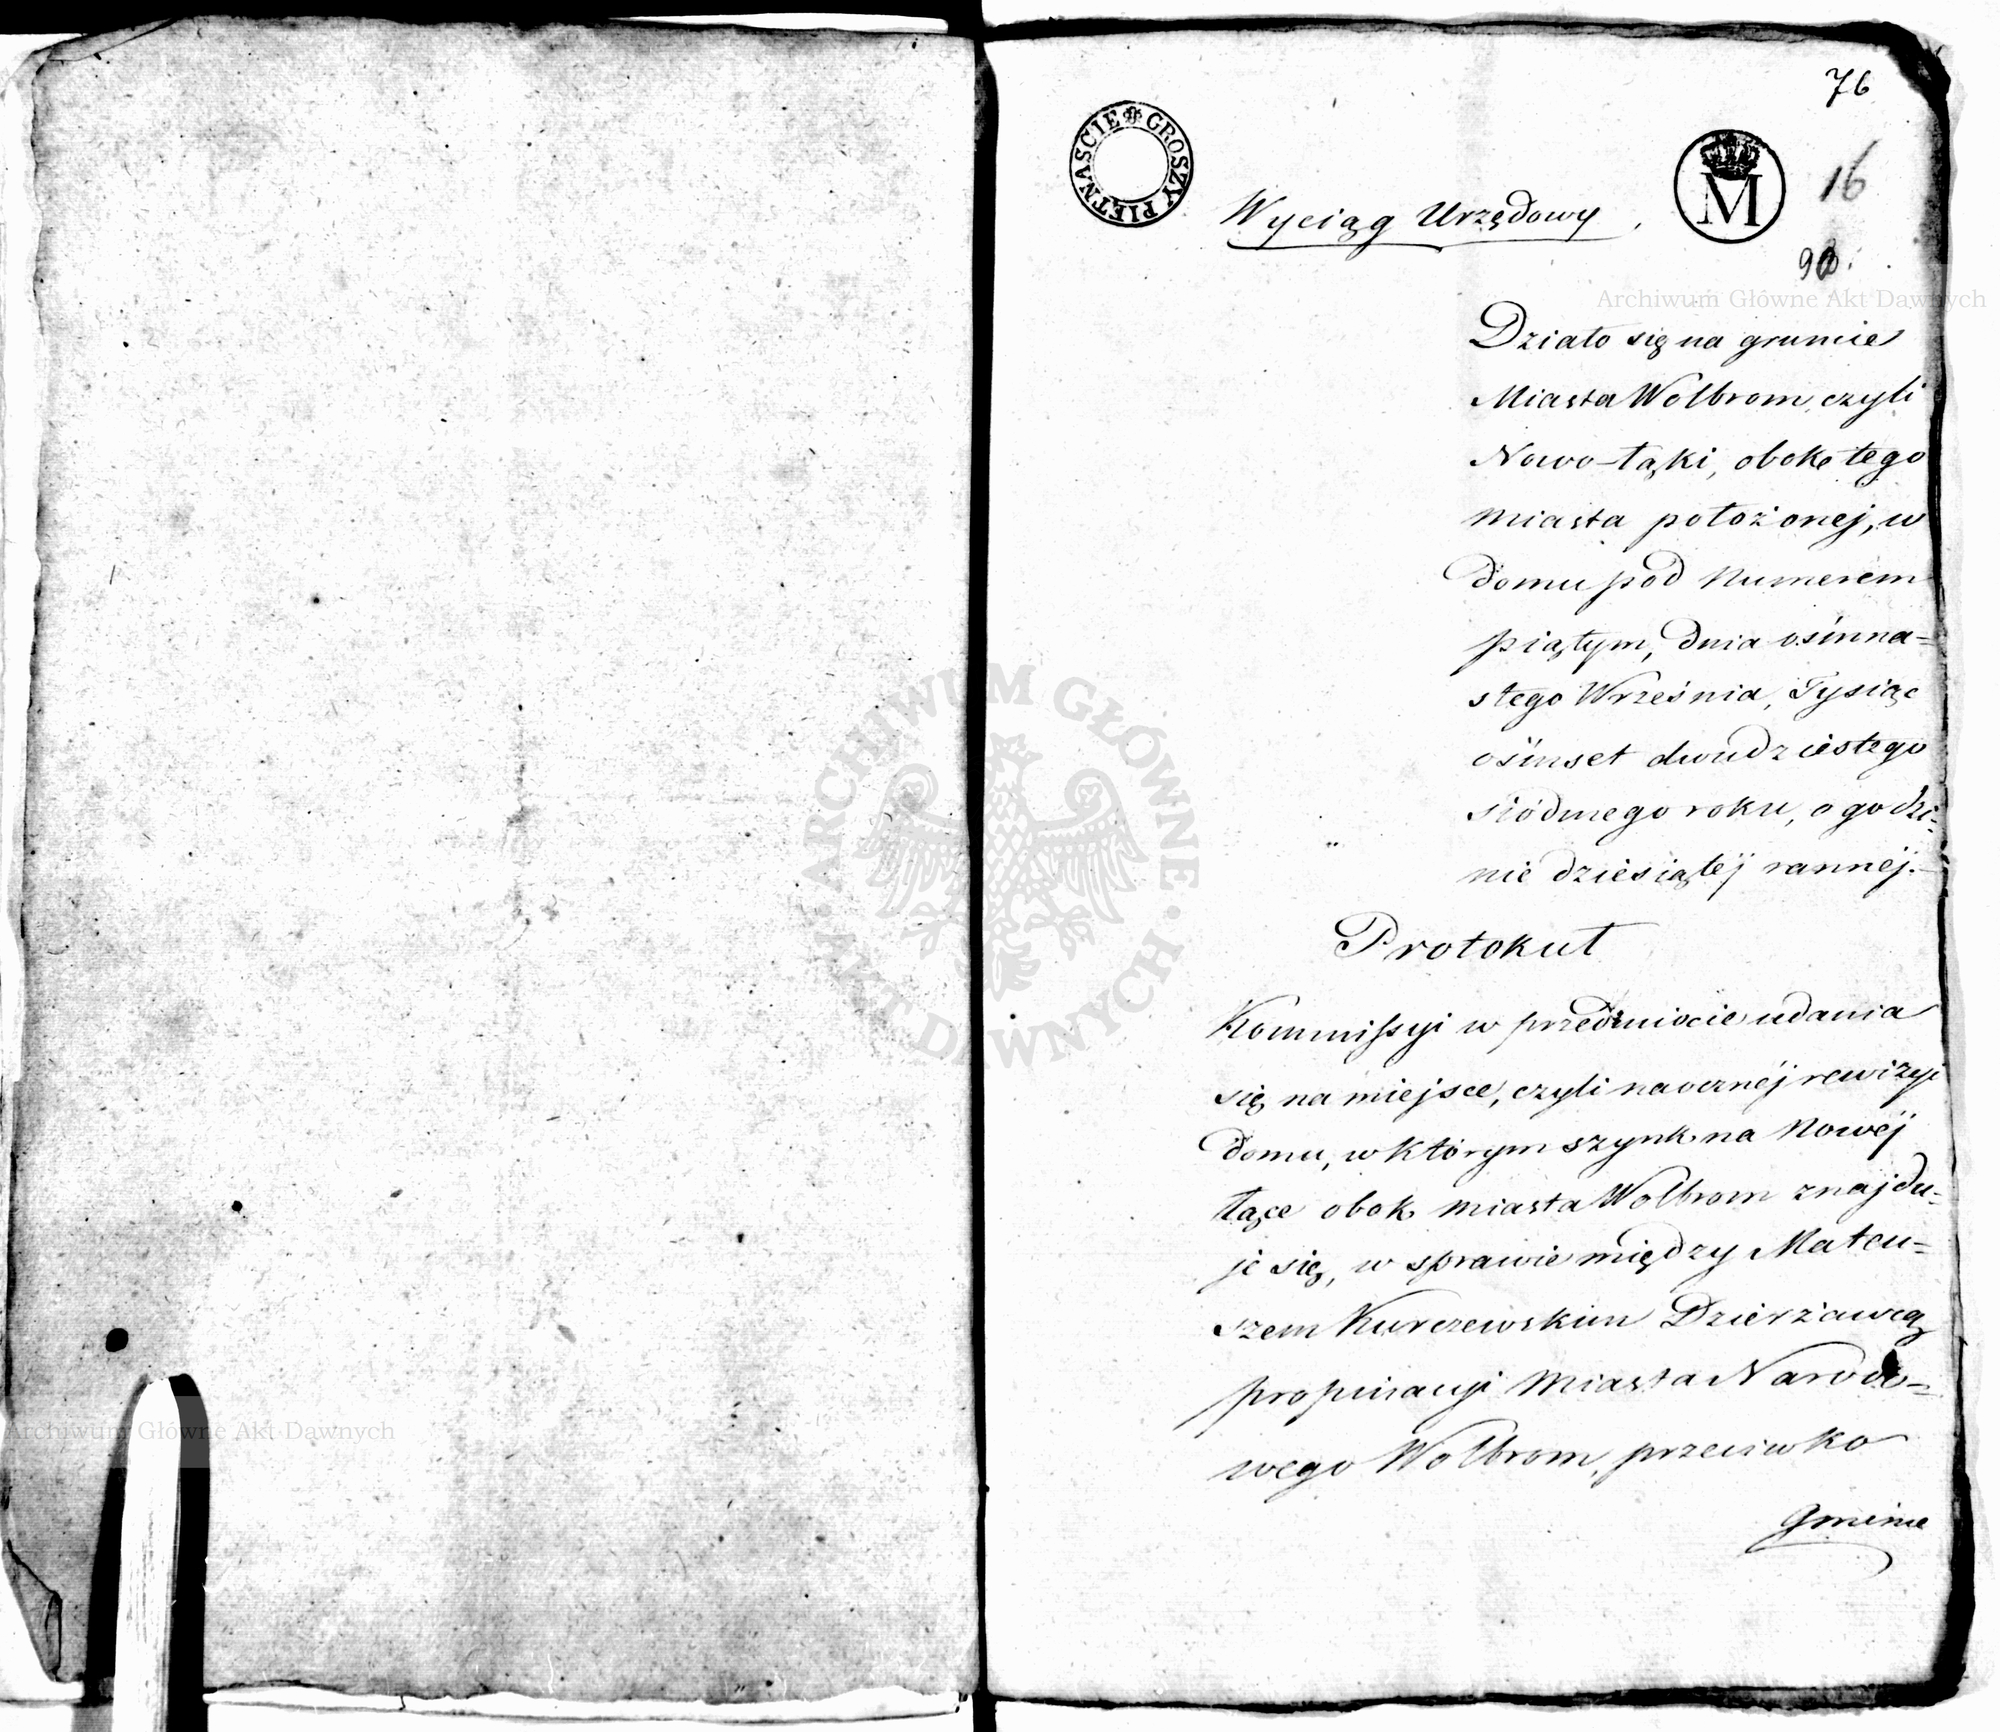 76
GROSZY PIĘTNASCIE
M
16
Wyciąg Urzędowy.
90.
Archiwum Główne Akt Dawnych
Działo się na gruncie
Miasta Wolbrom, czyli
Nowo-łąki, obok tego
miasta położonej, w
domu pod Numerem
piątym, dnia ośmna=
stego Września, Tysiąc
ośmset dwudziestego
siódmego roku, o godzi=
nie dziesiątéj rannéj.
Protokuł
Kommissyi w przedmiocie udania
się na miejsce, czyli naocznéj rewizyi
domu, w którym szynk na Nowéj
łące obok miasta Wolbrom znajdu=
je się, w sprawie między Mateu=
szem Kurczewskim Dzierżawcą
propinacyi Miasta Narodo=
wego Wolbrom, przeciwko
Gminie
ARCHIWUM GŁÓWNE AKT DAWNYCH
Archiwum Główne Akt Dawnych